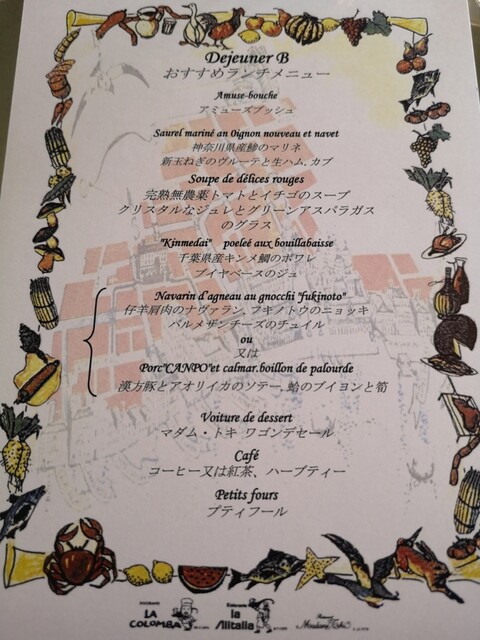 Dejeuner B
おすすめランチメニュー
Amuse-bouche
アミューズブッシュ
Saurel mariné an Oignon nouveau et navet
神奈川県産鯵のマリネ
新玉ねぎのヴルーテと生ハム、カブ
Soupe de défices rouges
完熟無農薬トマトとイチゴのスープ
クリスタルなジュレとグリーンアスパラガス
のグラス
"Kinmedai" poeleé aux bouillabaisse
千葉県産キンメ鯛のポワレ
ブイヤベースのジュ
Navarin d'agneau au gnocchi "fukinoto"
仔羊肩肉のナヴァラン、フキノトウのニョッキ
パルメザンチーズのチュイル
ou
又は
Porc"CANPO"et calmar.boillon de palourde
漢方豚とアオリイカのソテー、蛤のブイヨンと筍
Voiture de dessert
マダム・トキ ワゴンデセール
Café
コーヒー又は紅茶、ハーブティー
Petits fours
プティフール
LA COLOMBA
la Alitalia
Madame Toki